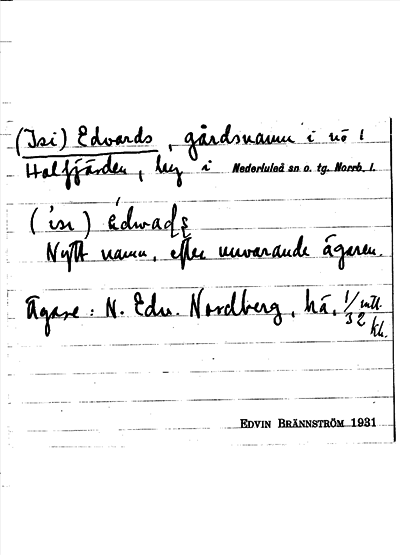 (Isi) Edvards, gårdsnamn i nö
Halfjärden, by i Nederluleå sn o. tg. Norrb. l.
Nytt namn, efter nuvarande ägaren.
Ägare: N. Edv. Nordberg, hä, 1/32 mtl.
EDVIN BRÄNNSTRÖM 1931